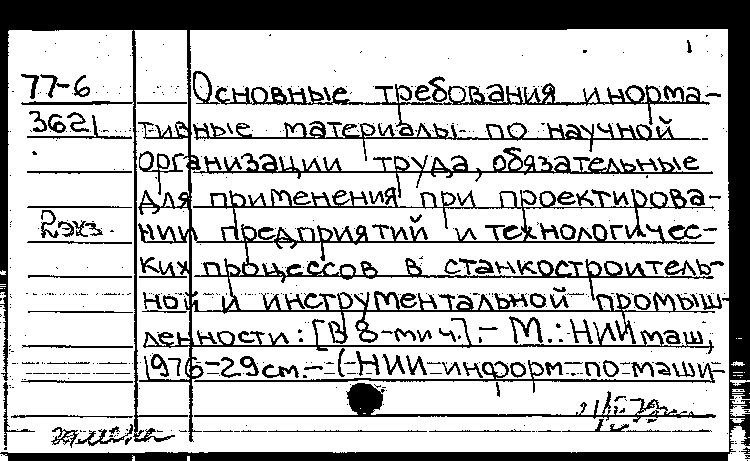 77-6 Основные требования и норма-
3621 тивные материалы по научной
организации труда, обязательные
для применения при проектирова-
2 экз. нии предприятий и технологичес-
ких процессов в станкостроитель-
ной и инструментальной промыш-
ленности: [В 8-ми ч.]. - М.: НИИмаш,
1976-29см. - (НИИ информ. по маши-